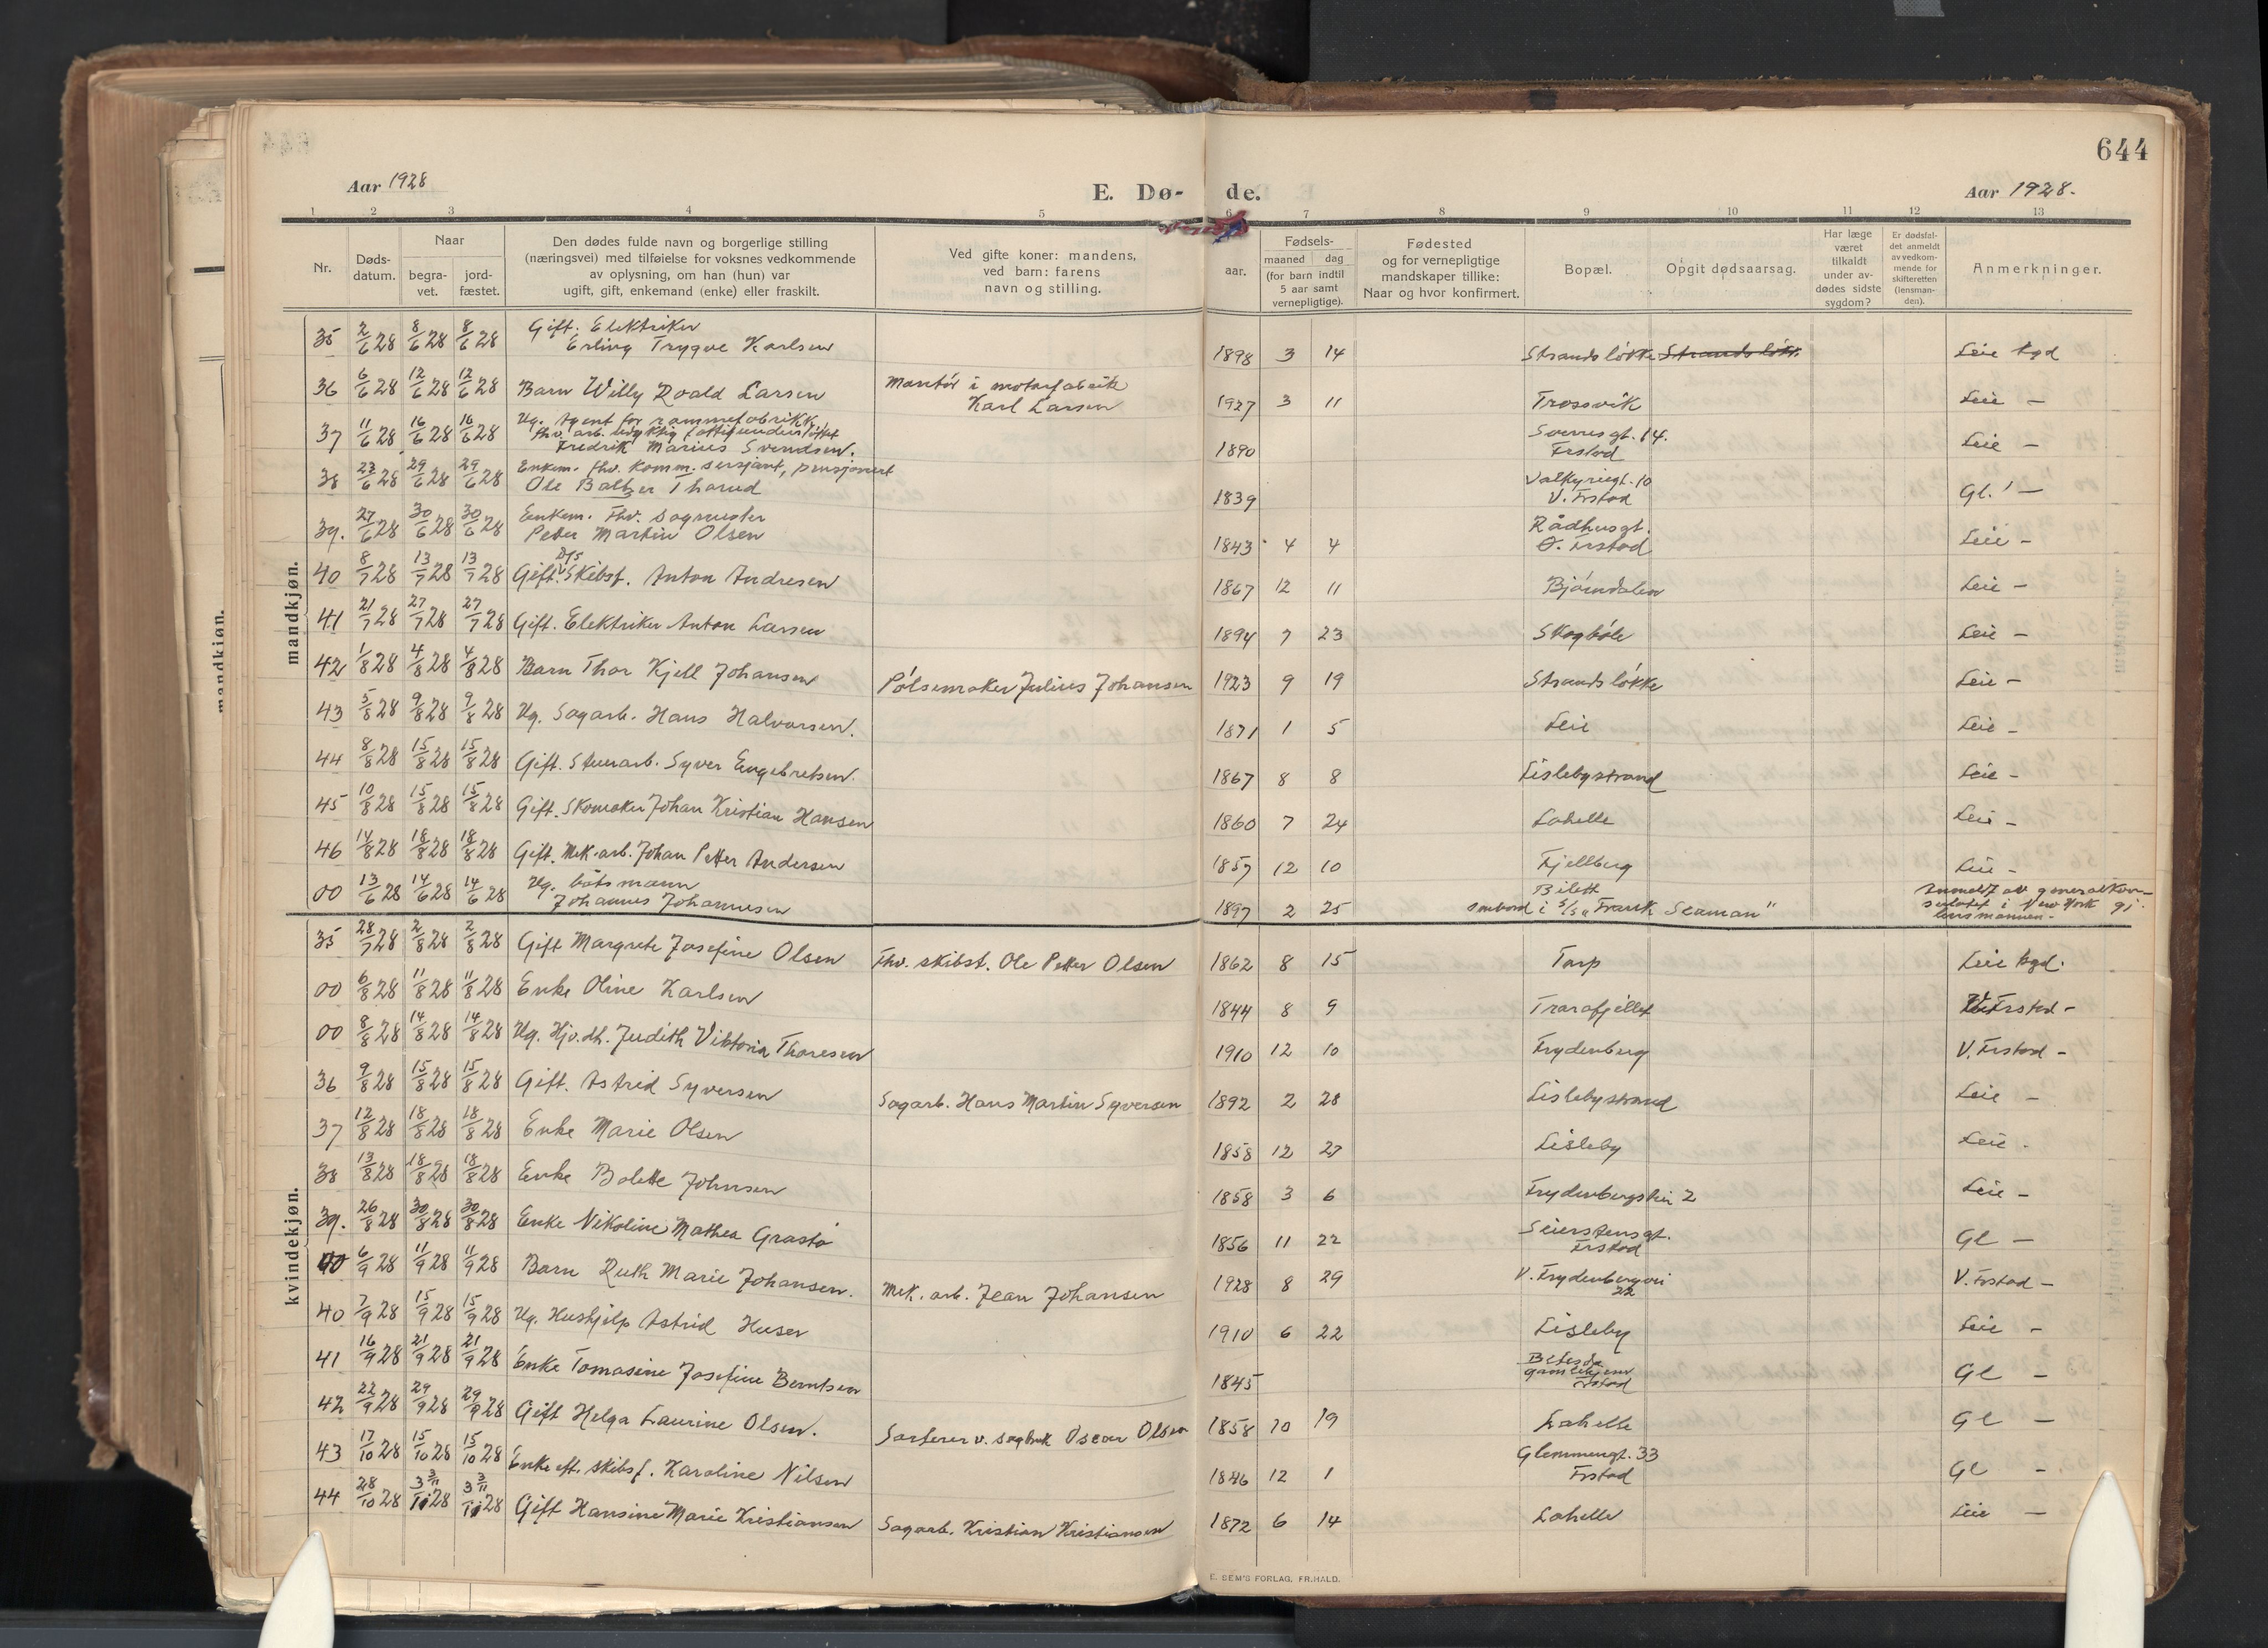 644
Aar 1928
E. Dø- de.
Aar 1928.
1 2 3 4 5 6 7 8 9 10 11 12 13
Nr.
Døds-
datum.
Naar
begra-
vet.
jord-
fæstet.
Den dødes fulde navn og borgerlige stilling
(næringsvei) med tilføielse for voksnes vedkommende
av oplysning, om han (hun) var
ugift, gift, enkemand (enke) eller fraskilt.
Ved gifte koner: mandens,
ved barn: farens
navn og stilling.
Fødsels-
aar.
maaned dag
(for barn indtil
5 aar samt
vernepligtige).
Fødested
og for vernepligtige
mandskaper tillike:
Naar og hvor konfirmert.
Bopæl.
Opgit dødsaarsag.
Har læge
været
tilkaldt
under av-
dødes sidste
sygdom?
Er dødsfal-
det anmeldt
av vedkom-
mende for
skifteretten
(lensman-
den).
Anmerkninger.
mandkjøn.
35 2/6 28 8/6 28 8/6 28 Gift. Elektriker
Erling Trygve Karlsen 1898 3 14 Strandsløkke Strandsløkk. Leie kgd
36 6/6 28 12/6 28 12/6 28 Barn Willy Roald Larsen Montør i motorfabrik
Karl Larsen 1927 3 11 Trossvik Leie -
37 11/6 28 16/6 28 16/6 28 Ug. Agent for rammefabrikk,
fhv. arb.
Fredrik Marius Svendsen. 1890 Sverresgt. 14.
Frstad Leie -
38 23/6 28 29/6 28 29/6 28 Enkem. fhv. komm. sersjant, pensjonert
Ole Baltzer Thorud 1839 Valkyriegt. 10
V. Frstad Gl. -
39. 27/6 28 30/6 28 30/6 28 Enkem. Fhv. sagmester
Peder Martin Olsen 1843 4 4 Rådhusgt.
Ø. Frstad Leie -
40 8/7 28 13/7 28 13/7 28 Gift. Skibsf. Anton Andresen 1867 12 11 Bjørndalen Leie -
41 21/7 28 27/7 28 27/7 28 Gift. Elektriker Anton Larsen 1894 7 23 Skogbøle Leie -
42 1/8 28 4/8 28 4/8 28 Barn Thor Kjell Johansen Pølsemaker Julius Johansen 1923 9 19 Strandsløkke Leie -
43 5/8 28 9/8 28 9/8 28 Ug. Sagarb. Hans Halvorsen. 1871 1 5 Leie Leie -
44 8/8 28 15/8 28 15/8 28 Gift. Stuerarb. Syver Engebretsen. 1867 8 8 Lislebystrand Leie -
45 10/8 28 15/8 28 15/8 28 Gift. Skomaker Johan Kristian Hansen 1860 7 24 Lahelle Leie -
46 14/8 28 18/8 28 18/8 28 Gift. Mek. arb. Johan Petter Andersen 1857 12 10 Fjellberg Leie -
00 13/6 28 14/6 28 14/6 28 Ug. båtsmann
Johannes Johannesen 1897 2 25 Bilett
ombord i S/S "Frank Seaman" Anmeldt av generalkon-
sulatet i New York gj.
lensmannen.
kvindekjøn.
35 28/7 28 2/8 28 2/8 28 Gift Margrete Josefine Olsen Fhv. skibst. Ole Petter Olsen 1862 8 15 Torp Leie kgd.
00 6/8 28 11/8 28 11/8 28 Enke Oline Karlsen 1844 8 9 Trarafjellet V. Frstad -
00 8/8 28 14/8 28 14/8 28 Ug. Hjv. dt. Judith Viktoria Thoresen 1910 12 10 Frydenberg V. Frstad -
36 9/8 28 15/8 28 15/8 28 Gift. Astrid Syversen Sagarb. Hans Martin Syversen 1892 2 28 Lislebystrand Leie -
37 12/8 28 18/8 28 18/8 28 Enke Marie Olsen 1858 12 27 Lisleby Leie -
38 13/8 28 18/8 28 18/8 28 Enke Bolette Johnsen 1858 3 6 Frydenbergvei 2 Leie -
39. 26/8 28 30/8 28 30/8 28 Enke Nikoline Mathea Grastø 1856 11 22 Seierstensgt.
Frstad Gl -
00 6/9 28 11/9 28 11/9 28 Barn Ruth Marie Johansen. Mek. arb. Jean Johansen 1928 8 29 V. Frydenbergvei
22 V. Frstad -
40 7/9 28 15/9 28 15/9 28 Ug. Hushjelp Astrid Huser 1910 6 22 Lisleby Leie -
41 16/9 28 21/9 28 21/9 28 Enke Tomasine Josefine Berntsen 1845 Betesda
gamlehjem
Frstad Gl -
42 22/9 28 29/9 28 29/9 28 Gift Helga Laurine Olsen. Sorterer v. sagbruk Oscar Olsen 1858 10 19 Lahelle Gl -
43 17/10 28 15/10 28 15/10 28 Enke eft. skibsf. Karoline Nilsen 1846 12 1 Glemmengt. 33
Frstad Gl -
44 28/10 28 3/11 28 3/11 28 Gift Hansine Marie Kristiansen Sagarb. Kristian Kristiansen 1872 6 14 Lahelle Leie -
E. SEM'S FORLAG, FR.HALD.